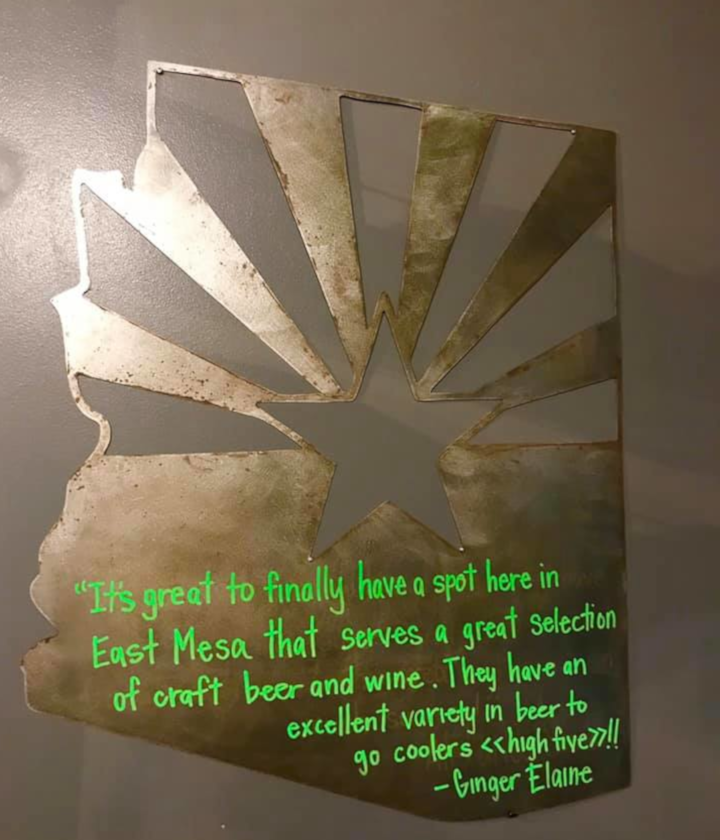 "It's great to finally have a spot here in
East Mesa that serves a great selection
of craft beer and wine. They have an
excellent variety in beer to
go coolers <<high five>>!!
- Ginger Elaine